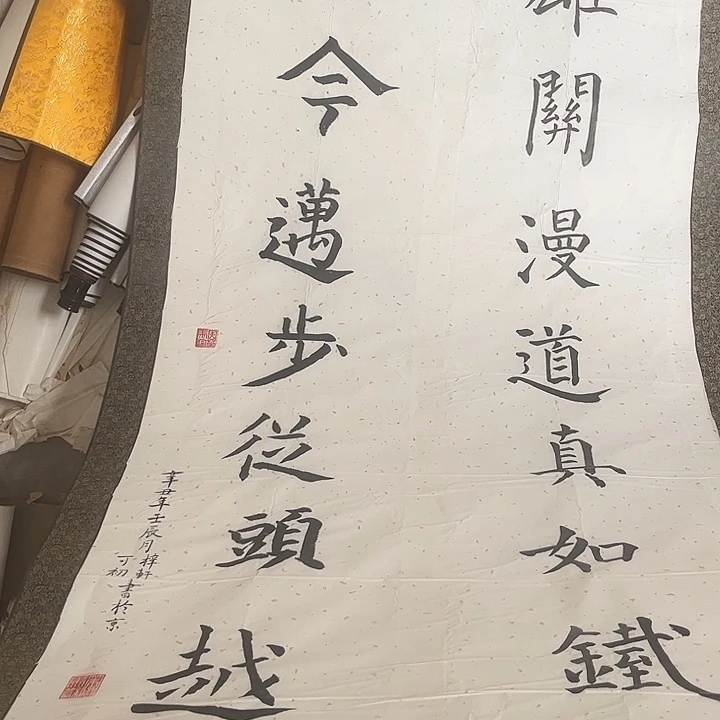 雄關漫道真如鐵
今邁步從頭越
辛丑年壬辰月梓軒
丁初書於京